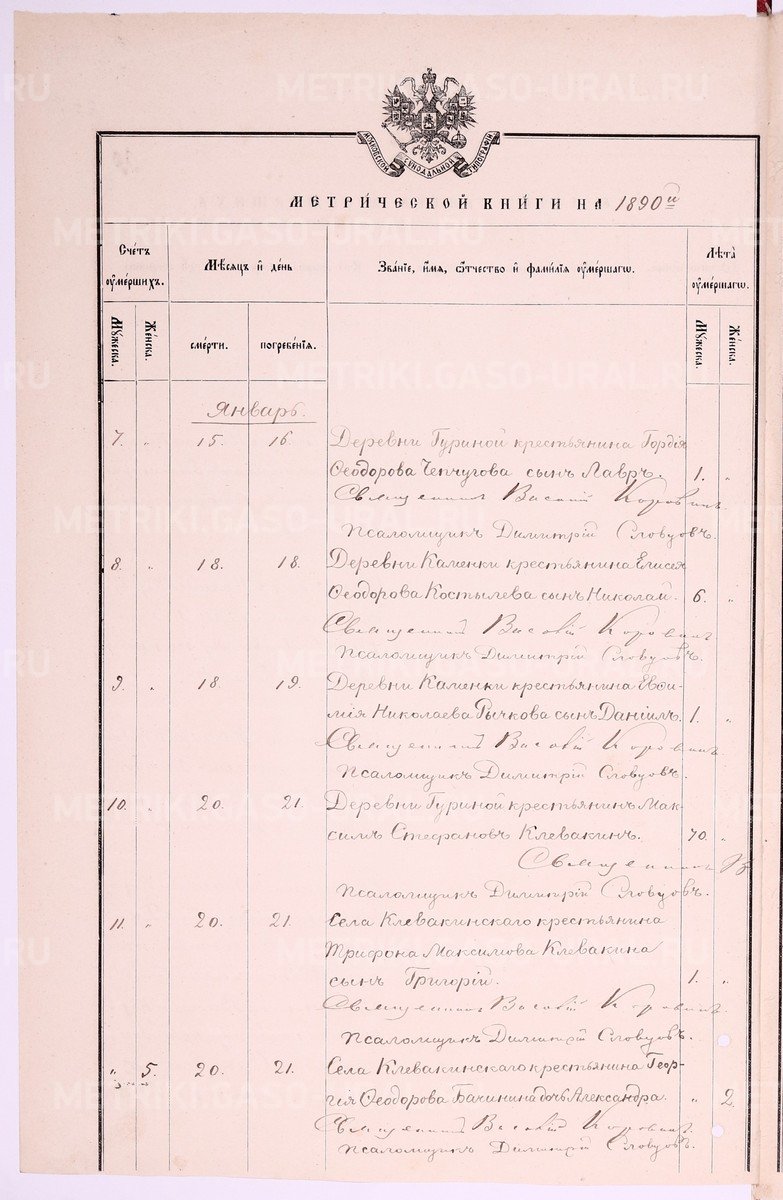 METRIKI.GASO-URAL.RU
МОСКОВСКОЙ СѴНОДАЛЬНОЙ ТИПОГРАФІИ
МЕТРИ́ЧЕСКОЙ КНИ́ГИ НА 1890 й
Сче́тъ ᲂу҆ме́ршихъ.
Мѣ́сяцъ и҆ де́нь
Зва́нїе, и҆́мѧ, ѻ҆́тчество и҆ фамѝлїѧ ᲂу҆ме́ршагѡ.
Лѣта̀ ᲂу҆ме́ршагѡ.
Мꙋ́жеска.
Же́нска.
сме́рти.
погребе́нїѧ.
Мꙋ́жеска.
Же́нска.
Январь.
7. " 15 16 Деревни Гуриной крестьянина Гордія
Ѳеодорова Чепчугова сынъ Лавръ. 1. "
Священникъ Василій Коровинъ.
Псаломщикъ Димитрій Словцовъ.
8. " 18. 18. Деревни Каменки крестьянина Елисея
Ѳеодорова Костылева сынъ Николай. 6. "
Священникъ Василій Коровинъ.
Псаломщикъ Димитрій Словцовъ.
9. " 18 19. Деревни Каменки крестьянина Евѳи-
мія Николаева Рычкова сынъ Даніилъ. 1. "
Священникъ Василій Коровинъ.
Псаломщикъ Димитрій Словцовъ.
10. " 20. 21. Деревни Гуриной крестьянинъ Мак-
симъ Стефановъ Клевакинъ. 70. "
Священникъ
Псаломщикъ Димитрій Словцовъ.
11. " 20. 21. Села Клевакинскаго крестьянина
Трифона Максимова Клевакина
сынъ Григорій. 1. "
Священникъ Василій Коровинъ.
Псаломщикъ Димитрій Словцовъ.
" 5. 20. 21. Села Клевакинскаго крестьянина Геор-
гія Ѳеодорова Бачинина дочь Александра. " 2.
Священникъ Василій Коровинъ.
Псаломщикъ Димитрій Словцовъ.